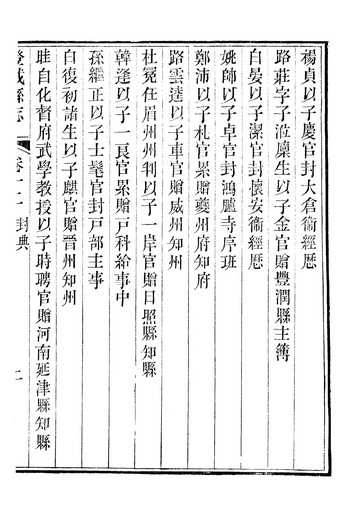 楊貞以子慶官封大倉衞經歷
路莊字子涖廩生以子金官贈豐潤縣主簿
白晏以子潔官封懷安衞經歷
姚師以子卓官封鴻臚寺序班
鄭沛以子札官累贈夔州府知府
路雲逵以子車官贈威州知州
杜冕任眉州州判以子一岸官贈日照縣知縣
韓逢以子一良官累贈戸科給事中
孫繼正以子士髦官封戸部主事
白復初諸生以子麒官贈晉州知州
眭自化督府武學教授以子時聘官贈河南延津縣知縣
縣志
卷十
封典
二